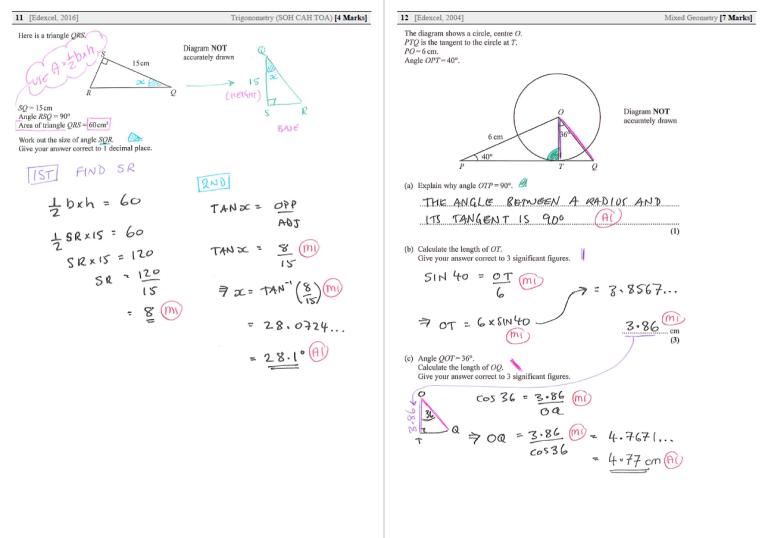 11 [Edexcel, 2016] Trigonometry (SOH CAH TOA) [4 Marks]
Here is a triangle QRS.
USE A = ½bxh
S
15 cm
x
R
Q
Diagram NOT
accurately drawn
Q
15
x
(HEIGHT)
S
R
BASE
SQ = 15 cm
Angle RSQ = 90°
Area of triangle QRS = 60 cm²
Work out the size of angle SQR.
Give your answer correct to 1 decimal place.
1ST FIND SR
½ bxh = 60
½ SR x 15 = 60
SR x 15 = 120
SR = 120/15
= 8 (M1)
2ND
TAN x = OPP/ADJ
TAN x = 8/15 (M1)
⇒ x = TAN⁻¹(8/15) (M1)
= 28.0724...
= 28.1° (A1)
12 [Edexcel, 2004] Mixed Geometry [7 Marks]
The diagram shows a circle, centre O.
PTQ is the tangent to the circle at T.
PO = 6 cm.
Angle OPT = 40°.
O
6 cm
36°
40°
P
T
Q
Diagram NOT
accurately drawn
(a) Explain why angle OTP = 90°.
THE ANGLE BETWEEN A RADIUS AND
ITS TANGENT IS 90° (A1)
(1)
(b) Calculate the length of OT.
Give your answer correct to 3 significant figures.
SIN 40 = OT/6 (M1)
⇒ OT = 6 x SIN 40 (M1)
= 3.8567...
3.86 (M1)
cm
(3)
(c) Angle QOT = 36°.
Calculate the length of OQ.
Give your answer correct to 3 significant figures.
O
3.86
36
T
Q
COS 36 = 3.86/OQ (M1)
⇒ OQ = 3.86/COS36 (M1) = 4.7671...
= 4.77 cm (A1)